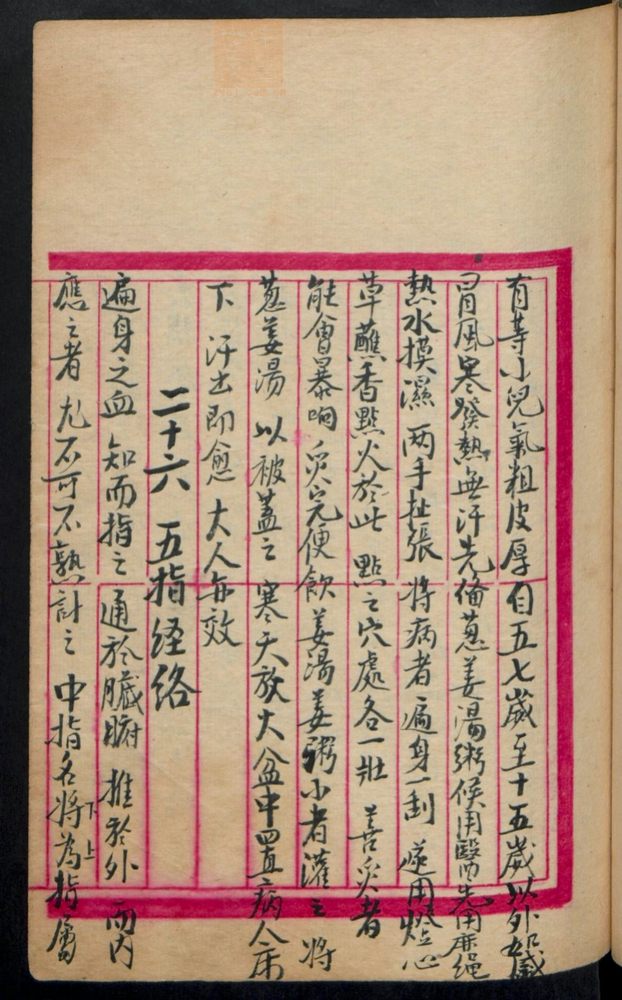 有等小兒氣粗皮厚自五七歲至十五歲以外如感
冒風寒發熱無汗先俻蔥姜湯粥候用醫者先用麻繩
熱水摸濕 两手扯張 将病者遍身一刮 遂用燈心
草蘸香點火於此 點之穴處各一壯 善灸者
能會暴响 灸完便飲姜湯姜粥小者灌之 将
蔥姜湯 以被蓋之 寒天放火盆中置病人床
下 汗出即愈 大人亦效
二十六 五指经络
遍身之血 知而指之 通於臟腑 推於外 而内
應之者 尤不可不熟討之 中指名将為指屬
下
上